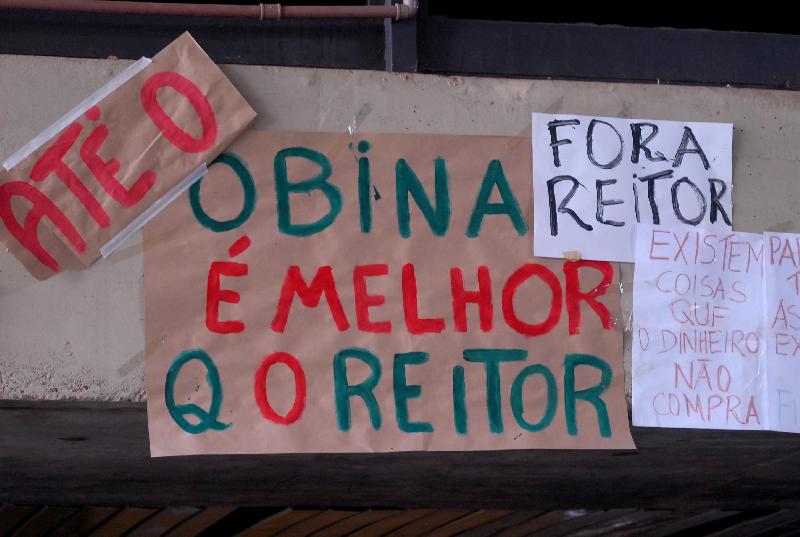 ATÉ O
OBINA
É MELHOR
Q O REITOR
FORA
REITOR
EXISTEM
COISAS
QUE
O DINHEIRO
NÃO
COMPRA